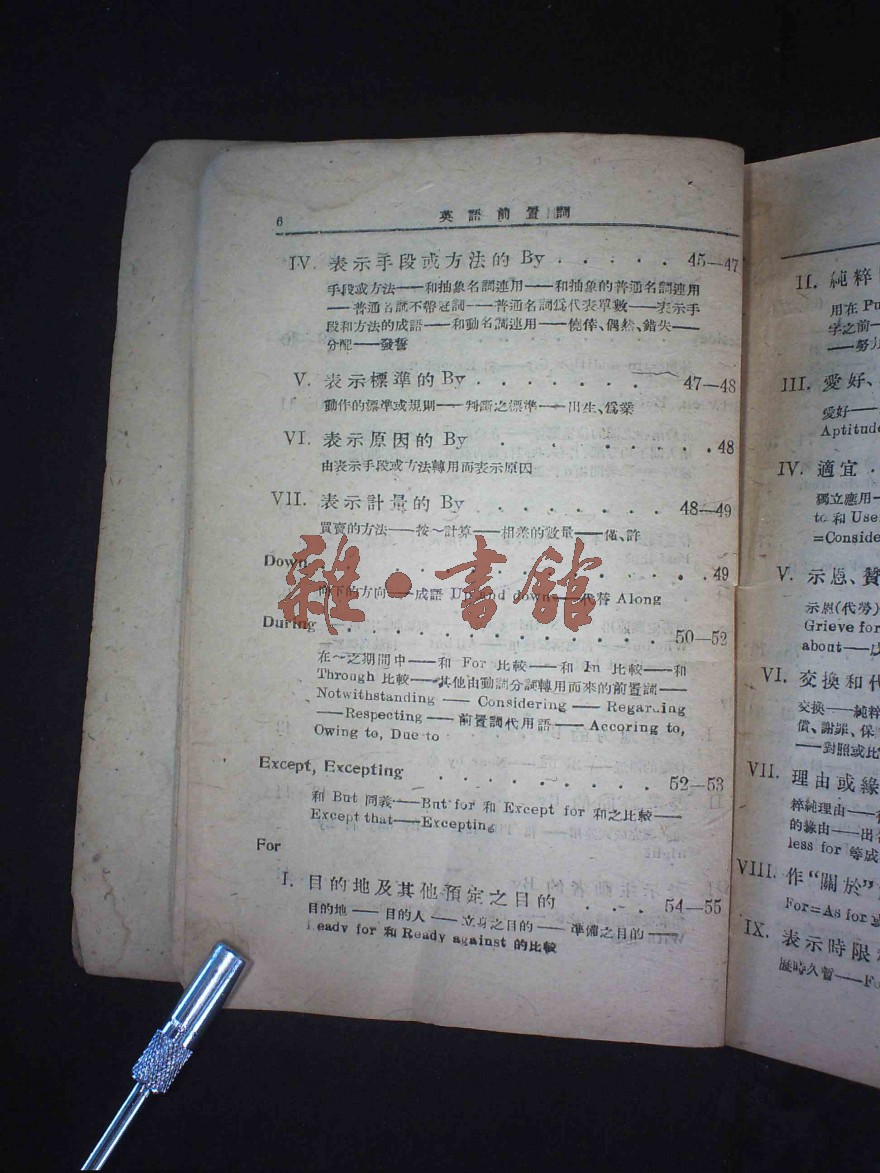 6
英語前置詞
IV. 表示手段或方法的 By . . . . . 45—47
手段或方法——和抽象名詞連用——和抽象的普通名詞連用
——普通名詞不帶冠詞——普通名詞爲代表單數——表示手
段和方法的成語——和動名詞連用——僥倖、偶然、錯失——
分配——發誓
V. 表示標準的 By . . . . . . . 47—48
動作的標準或規則——判斷之標準——出生、爲業
VI. 表示原因的 By . . . . . . . 48
由表示手段或方法轉用而表示原因
VII. 表示計量的 By . . . . . . . 48—49
買賣的方法——按～計算——相差的數量——
Down . . . . . . . . . . 49
向下的方向——成語 Up and down——代替 Along
During . . . . . . . . . . 50—52
在～之期間中——和 For 比較——和 In 比較——和
Through 比較——其他由動詞分詞轉用而來的前置詞——
Notwithstanding —— Considering —— Regarding
——Respecting —— 前置詞代用語 —— Accoring to,
Owing to, Due to
Except, Excepting . . . . . . . 52—53
和 But 同義——But for 和 Except for 和之比較——
Except that——Excepting
For
I. 目的地及其他預定之目的 . . . 54—55
目的地 —— 目的人 —— 立身之目的 —— 準備之目的 ——
Ready for 和 Ready against 的比較
雜·書館
II. 純粹
用在 Pu
字之前—
——努力
III. 愛好、
愛好——
Aptitude
IV. 適宜 .
獨立應用—
to 和 Use
=Conside
V. 示恩、贊
示恩(代勞)
Grieve for
about——
VI. 交換和代
交換——純粹
償、謝罪、保
——對照或比
VII. 理由或緣
粹純理由——
的緣由——出
less for 等成
VIII. 作“關於”
For=As for 或
IX. 表示時限
歷時久暫——Fo